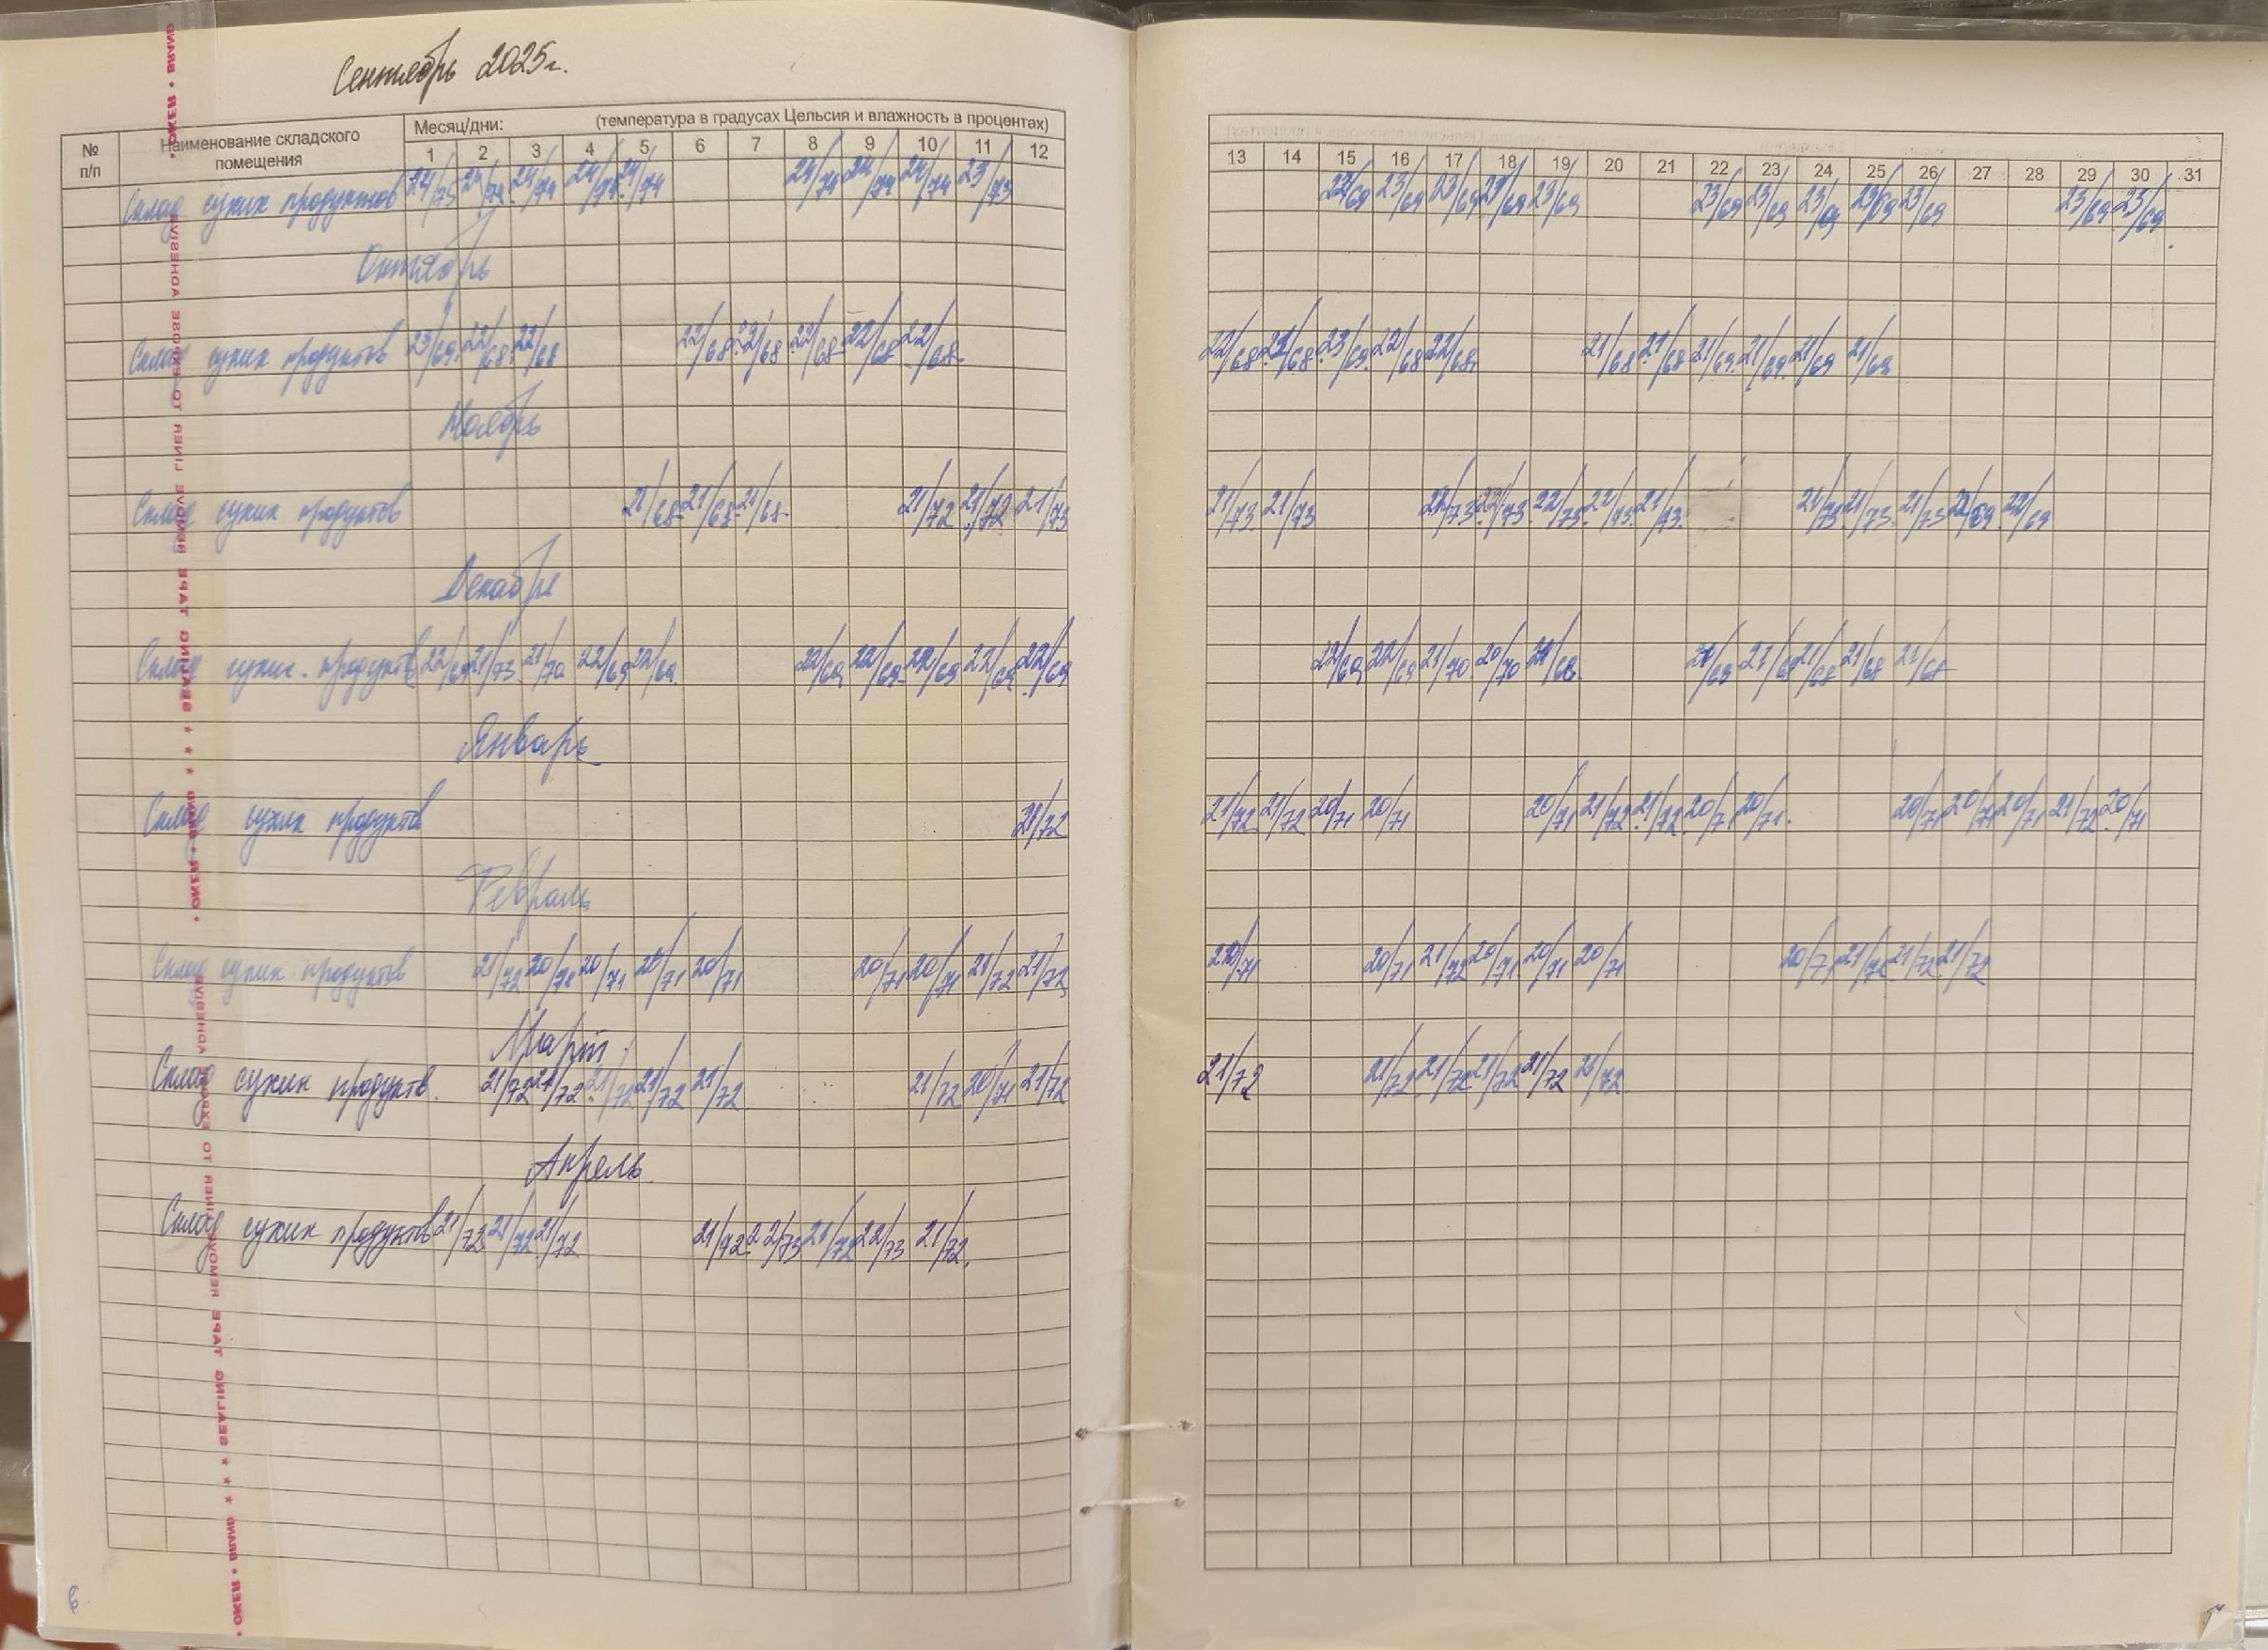 Сентябрь 2025г.
№ п/п
Наименование складского помещения
Месяц/дни: (температура в градусах Цельсия и влажность в процентах)
1 2 3 4 5 6 7 8 9 10 11 12 13 14 15 16 17 18 19 20 21 22 23 24 25 26 27 28 29 30 31
Склад сухих продуктов 24/75 24/74 24/74 24/74 24/74 24/74 24/74 24/74 23/73 22/69 23/69 23/69 23/69 23/69 23/69 23/69 23/69 23/69 23/69 23/69 23/69
Октябрь
Склад сухих продуктов 23/69 22/68 22/68 22/68 22/68 22/68 22/68 22/68 22/68 22/68 23/69 22/68 22/68 21/68 21/68 21/69 21/69 21/69 21/69
Ноябрь
Склад сухих продуктов 21/68 21/68 21/68 21/72 21/72 21/73 21/73 21/73 22/73 22/73 22/73 22/73 21/73 21/73 21/73 21/73 22/69 22/69
Декабрь
Склад сухих продуктов 22/69 21/73 21/70 22/69 22/69 22/69 22/69 22/69 22/69 22/69 22/69 22/69 21/70 20/70 21/68 21/68 21/68 21/68 21/68
Январь
Склад сухих продуктов 21/72 21/72 21/72 20/71 20/71 20/71 21/72 21/72 20/71 20/71 20/71 20/71 20/71 21/72 20/71
Февраль
Склад сухих продуктов 21/72 20/71 20/71 20/71 20/71 20/71 20/71 21/72 21/72 20/71 20/71 21/72 20/71 20/71 20/71 20/71 21/72 21/72 21/72
Март
Склад сухих продуктов. 21/72 21/72 21/72 21/72 21/72 21/72 20/71 21/72 21/72 21/72 21/72 21/72 21/72 21/72
Апрель
Склад сухих продуктов 21/72 21/72 21/72 21/72 22/73 21/72 22/73 21/72
6
OKER • BRAND
SEALING TAPE REMOVE LINER TO EXPOSE ADHESIVE